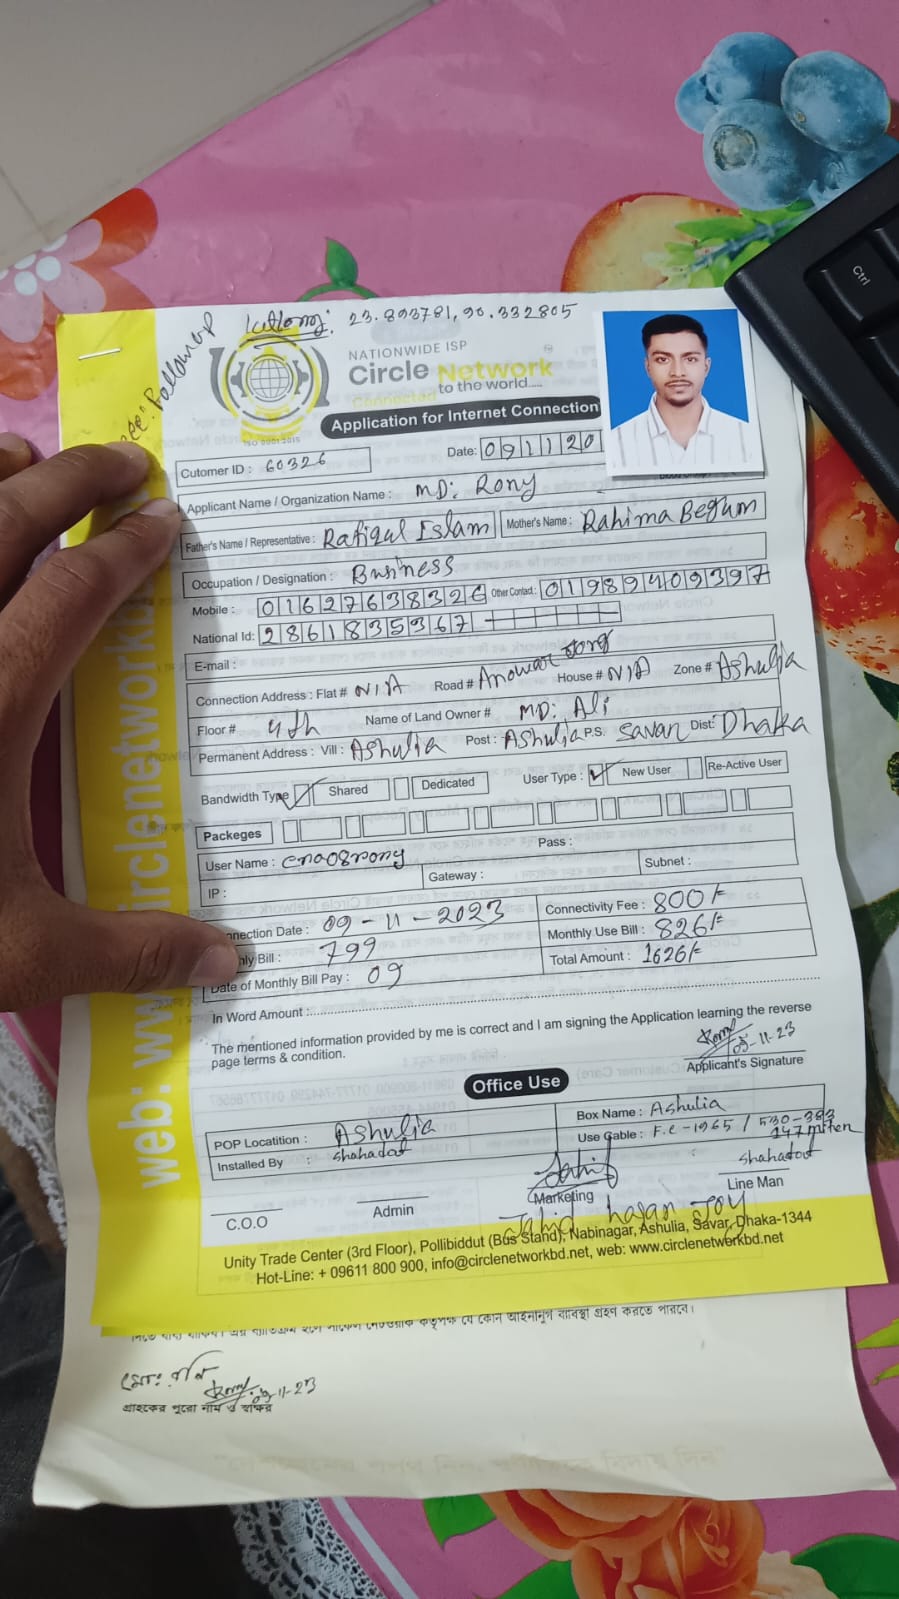 Latlong: 23.893781, 90.332805
NATIONWIDE ISP
Circle Network
Connected to the world.....
ISO 9001:2015
Application for Internet Connection
Cutomer ID : 60326
Date: 091120
Applicant Name / Organization Name : MD: Rony
Father's Name / Representative : Rafiqul Islam Mother's Name : Rahima Begum
Occupation / Designation : Business
Mobile : 01627638326 Other Contact : 01989409397
National Id: 2861835367
E-mail :
Connection Address : Flat # N/A Road # Anowar House # N/A Zone # Ashulia
Floor # 4th Name of Land Owner # MD: Ali
Permanent Address : Vill : Ashulia Post : Ashulia P.S. Savar Dist: Dhaka
Bandwidth Type Shared Dedicated User Type : New User Re-Active User
Packeges
User Name : cna08rony Pass :
IP : Gateway : Subnet :
nnection Date : 09-11-2023 Connectivity Fee : 800/-
hly Bill : 799 Monthly Use Bill : 826/-
Date of Monthly Bill Pay : 09 Total Amount : 1626/-
In Word Amount :
The mentioned information provided by me is correct and I am signing the Application learning the reverse
page terms & condition.
Rony
09-11-23
Applicant's Signature
Office Use
POP Locatition : Ashulia Box Name : Ashulia
Installed By : Shahadat Use Cable : F.C-1965 / 530-383
147 miten
Shahadat
C.O.O Admin Marketing Line Man
Jahid hasan Joy
Unity Trade Center (3rd Floor), Pollibiddut (Bus Stand), Nabinagar, Ashulia, Savar, Dhaka-1344
Hot-Line: + 09611 800 900, info@circlenetworkbd.net, web: www.circlenetworkbd.net
web: www.circlenetworkbd
মোঃ রনি
Rony 09-11-23
গ্রাহকের পুরো নাম ও স্বাক্ষর
Ctrl